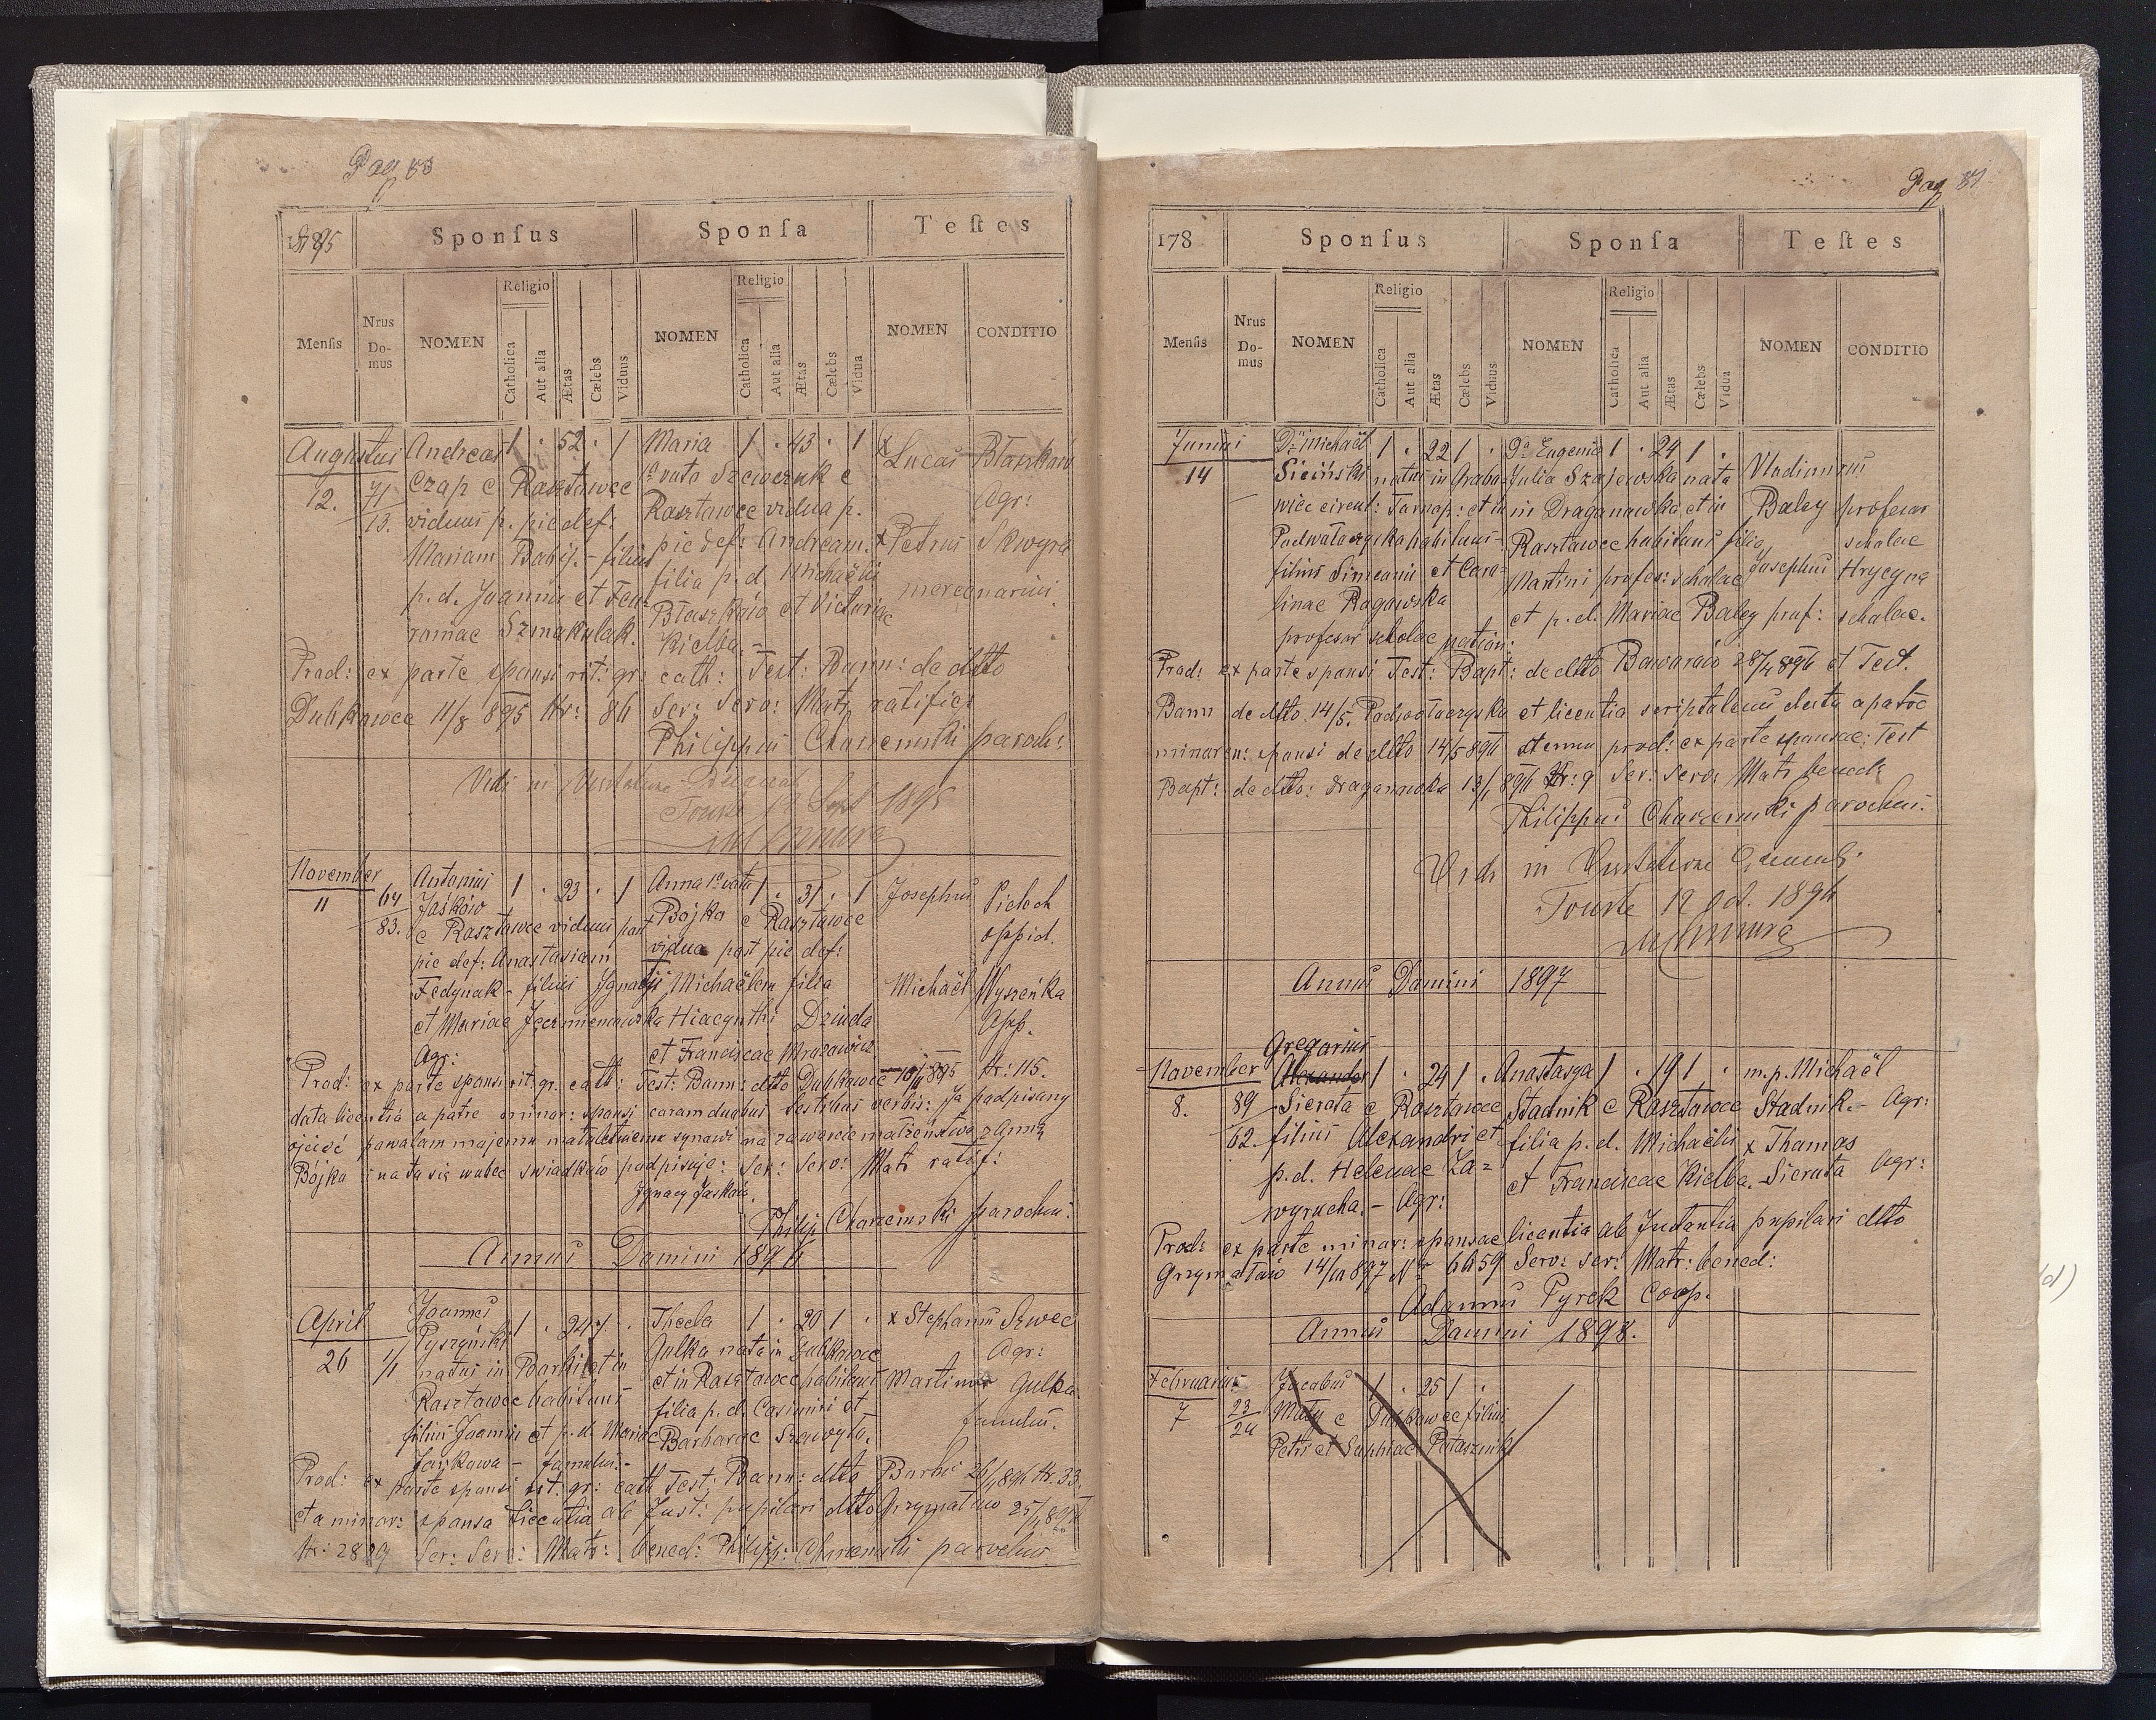 Pag 83
1895
Sponſus
Sponſa
Teſtes
Menſis
Nrus Do-mus
NOMEN
Religio
Catholica
Aut alia
Ætas
Cælebs
Viduus
NOMEN
Religio
Catholica
Aut alia
Ætas
Cælebs
Vidua
NOMEN
CONDITIO
Augustus 12. 71/13.
Andreas 1 · 52 · 1
Czap e Rasztowce
viduus p. pie def:
Mariam Babij. - filius
p. d. Joannis et Feu-
roniae Szmakulak.
Maria 1 · 43 · 1
1º voto Szewczuk e
Rasztowce vidua p.
pie def: Andream.
filia p. d. Michaëlis
Błaszków et Victoriae
Kielba. -
x Lucas Błaszków
Agr:
x Petrus Skwyra
mercenarius.
Prod: ex parte sponsi rit: gr: cath: Test: Bann: de dtto
Dubkowce 11/8 895 Nr: 86 Ser: Serv: Matr ratifics
Philippus Charzewski paroch:
Vidi in Visitatione Decanali
Touste 12 Sept 1895
November 11 64/83.
Antonius 1 · 23 · 1
Jaśków
e Rasztowce viduus post
pie def: Anastasiam
Fedynak - filius Ignatii
et Mariae Jeczmieniowska
Agr:
Anna 1º voto 1 · 31 · 1
Bojka e Rasztowce
vidua post pie def:
Michaëlem filia
Hiacynthi Dziuda
et Franciscae Mrozowicz
Josephus Pieloch
oppid.
Michaël Wyszeńka
Opp.
Prod: ex parte sponsi rit. gr. cath: Test: Bann: dtto Dubkowce 10/11 895 Nr: 115.
data licentia a patre minor: sponsi coram duobus testibus verbis: Ja podpisany
ojciec pozwalam mojemu małoletniemu synowi na zawarcie małżeństwa z Anną
Bójka i na to się wobec świadków podpisuje: Ser: Serv: Matr ratif:
Ignacy Jaśków.
Philip Charzewski parochus.
Annus Domini 1896
April 26 1/1
Joannes 1 · 24 1 ·
Pyszyński
natus in Barki et in
Rasztowce habitans
filius Joannis et p. d. Mariae
Jaśkowa - famulus. -
Thecla 1 · 20 1 ·
Gulka nata in Dubkowce
et in Rasztowce habitans
filia p. d. Casimiri et
Barbarae Szewczyk.
x Stephanus Szwec
Agr:
Martinus Gulka
famulus.
Prod: ex parte sponsi rit: gr: cath Test: Bann: dtto Burki 26/4 896 Nr 33.
et a minor: sponsa licentia ab Inst: pupilari dtto Grzymałów 25/4 896
Nr: 2829 Ser: Serv: Matr: bened: Philip: Charzewski parochus
Pag 84
178
Sponſus
Sponſa
Teſtes
Menſis
Nrus Do-mus
NOMEN
Religio
Catholica
Aut alia
Ætas
Cælebs
Viduus
NOMEN
Religio
Catholica
Aut alia
Ætas
Cælebs
Vidua
NOMEN
CONDITIO
Junius 14
Dns Michaël 1 · 22 1 ·
Siciński natus in Graba-
wice circul: Tarnop: et in
Podwołoczyska habitans -
filius Simeonis et Caro-
linae Rogowska
profesor scholae nation:
Da Eugenia 1 · 24 1 ·
Julia Szajowska nata
in Draganówka et in
Rasztowce habitans filia
Martini profes: scholae
et p. d. Mariae Baley
Vladimirus
Baley profesor
scholae
Josephus Hrycyna
prof: scholae.
Prod: ex parte sponsi Test: Bapt: de dtto Baworów 28/4 896 et Test.
Bann de dtto 14/5. Podwołoczyska et licentia scriptalem data a patre
minoren: sponsi de dtto 14/5 896 prod: ex parte sponsae: Test
Bapt: de dtto: Draganówka 13/1 896 Nr: 9 Ser: Serv: Matr bened:
Philippus Charzewski parochus.
Vidi in Visitatione
Touste 12 Oct. 1896
Annus Domini 1897
November 8. 89/62
Gregorius
Alexander 1 · 24 1 ·
Sierota e Rasztowce
filius Alexandri et
p. d. Helenae Za-
wyrucha. - Agr:
Anastasya 1 · 19 1 ·
Stadnik e Rasztowce
filia p. d. Michaëlis
et Franciscae Kielba.
m. p. Michaël
Stadnik. - Agr:
x Thomas
Sierota Agr:
Prod: ex parte minor: sponsae licentia ab Instantia pupilari dtto
Grzymałów 14/10 897 Nr 6659 Serv: ser: Matr: bened:
Adamus Pyrek Coop.
Annus Domini 1898.
Februarius 7 23/24
Jacobus 1 · 25 1 ·
Maty e Dubkowce filius
Petri et Sophiae Potasznik
d)